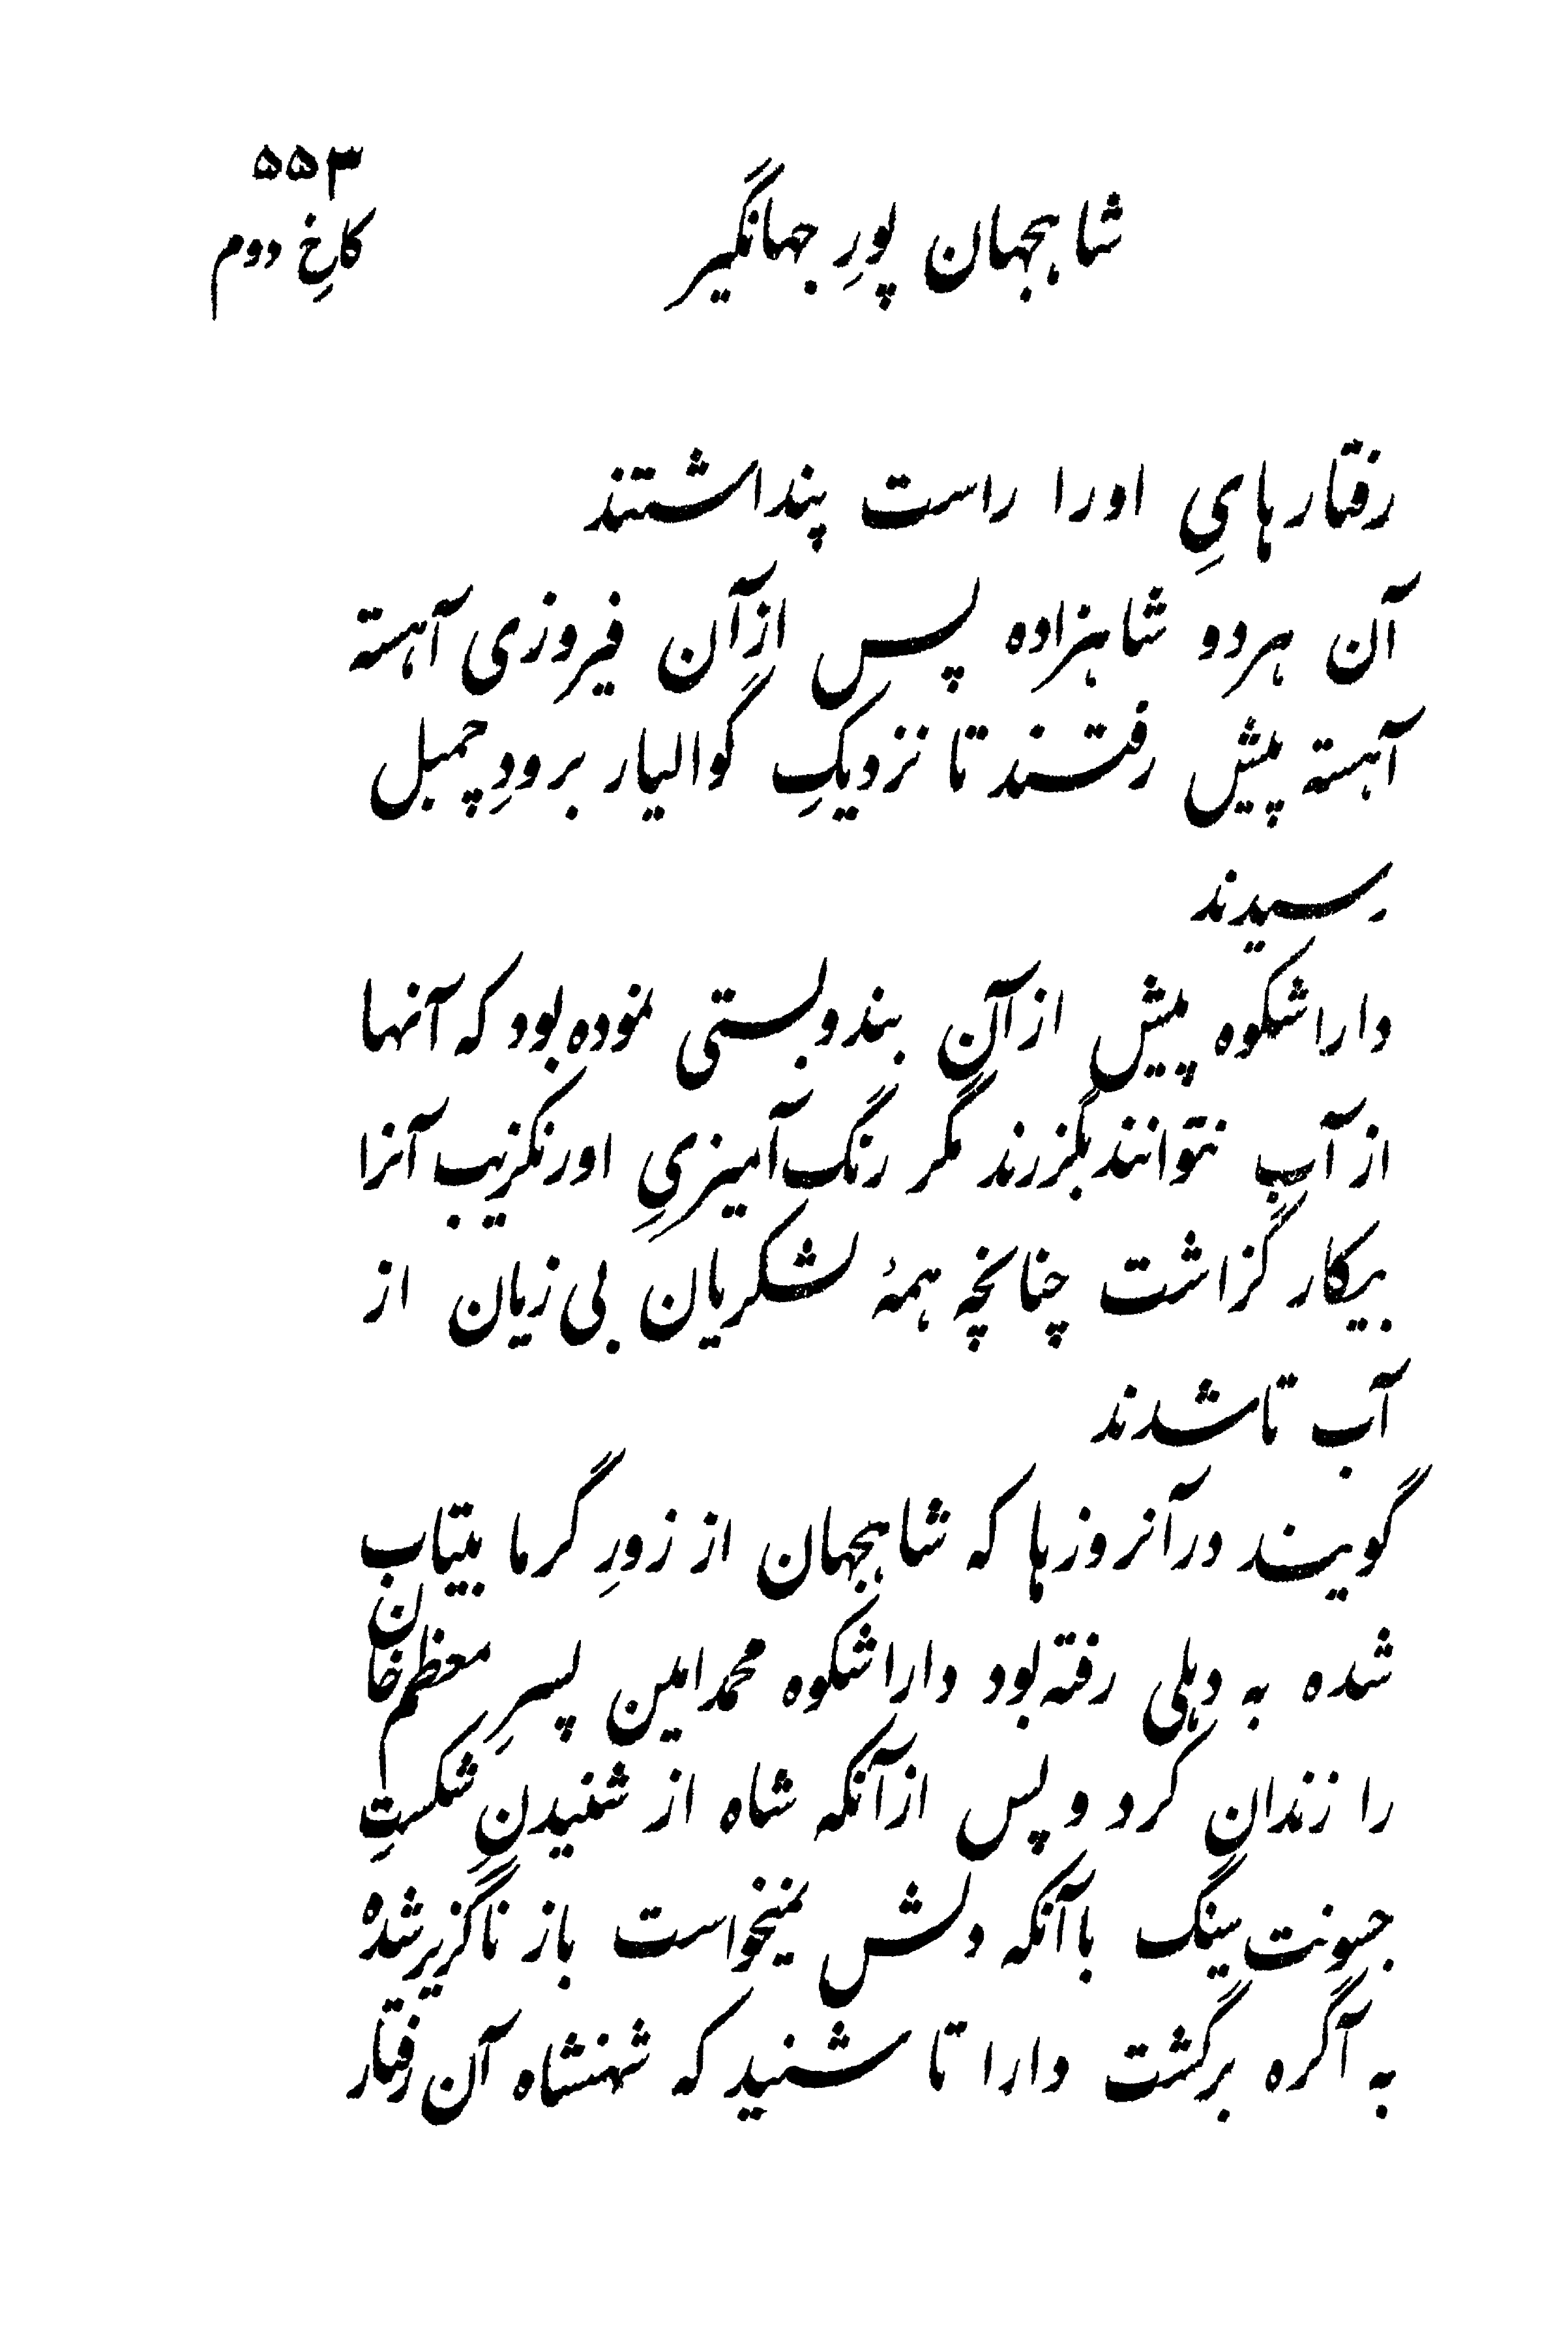 ۵۵۳
شاهجهان پورِ جهانگیر
کاخِ دوم
رفتارهایِ اورا راست پنداشتند
آن هردو شاهزاده پس ازآن فیروزی آهسته
آهسته پیش رفتند تا نزدیکِ گوالیار برودِ چمبل
رسیدند
داراشکوه پیش ازآن بندوبستی نموده بود که آنها
از آب نتوانند بگزرند مگر رنگ آمیزیِ اورنگزیب آنرا
بیکار گزاشت چنانچه همهٔ لشکریان بی زیان از
آب تا شدند
گویند درآنروزها که شاهجهان از زورِ گرما بیتاب
شده به دِهلی رفته بود داراشکوه محمد امین پسرِ معظم خان
را زندان کرد و پس ازآنکه شاه از شنیدنِ شکستِ
جسونت سینگ باآنکه دلش نمیخواست باز ناگزیر شده
به آگره برگشت دارا تا شنید که شهنشاه آن رفتار